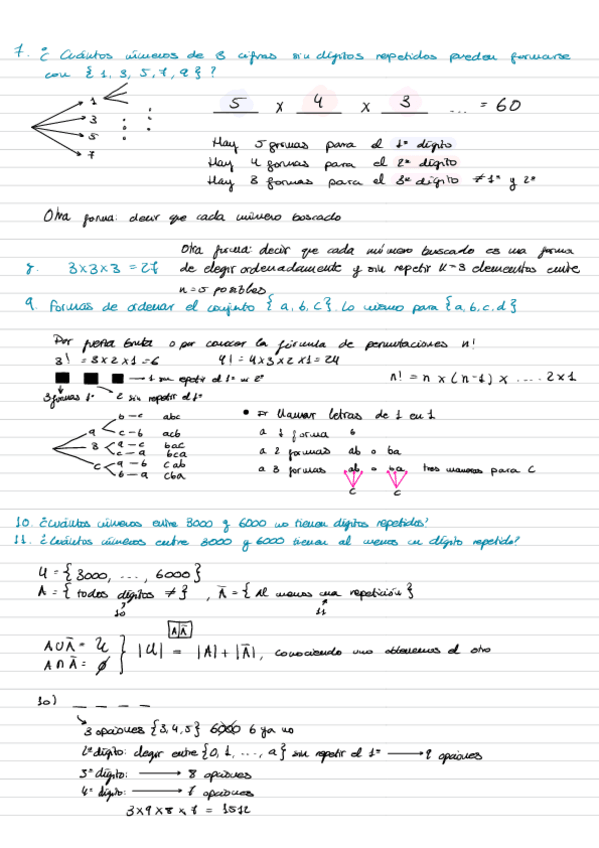 7. ¿ Cuántos números de 3 cifras sin dígitos repetidos pueden formarse
con { 1, 3, 5, 7, 9 } ?
1
3
5
7
5 x 4 x 3 ... = 60
Hay 5 formas para el 1º dígito
Hay 4 formas para el 2º dígito
Hay 3 formas para el 3º dígito ≠ 1º y 2º
Otra forma: decir que cada número buscado
Otra forma: decir que cada número buscado es una forma
8. 3x3x3 = 27 de elegir ordenadamente y sin repetir k=3 elementos entre
n=5 posibles
9. Formas de ordenar el conjunto { a, b, c }. Lo mismo para { a, b, c, d }
Por fuerza bruta o por conocer la fórmula de permutaciones n!
3! = 3x2x1=6 4! = 4x3x2x1=24
1 sin repetir el 1º ni 2º n! = n x (n-1) x .... 2x1
3 formas 1º 2 sin repetir el 1º
a b - c abc
c - b acb
B a - c bac
c - a bca
c a - b cab
b - a cba
• Ir llamar letras de 1 en 1
a 1 forma b
a 2 formas ab o ba
a 3 formas ab o ba tres maneras para C
c c
10. ¿Cuántos números entre 3000 y 6000 no tienen dígitos repetidos?
11. ¿Cuántos números entre 3000 y 6000 tienen al menos un dígito repetido?
U = { 3000, ..., 6000 }
A = { todos dígitos ≠ } , Ā = { Al menos una repetición }
10 11
A Ā
A∪Ā = U
A∩Ā = ∅ } |U| = |A| + |Ā|, conociendo uno obtenemos el otro
10) _ _ _ _
3 opciones {3,4,5} 6000 6 ya no
2º dígito: elegir entre {0, 1, ..., a} sin repetir el 1º → 9 opciones
3º dígito: → 8 opciones
4º dígito: → 7 opciones
3x9x8x7 = 1512